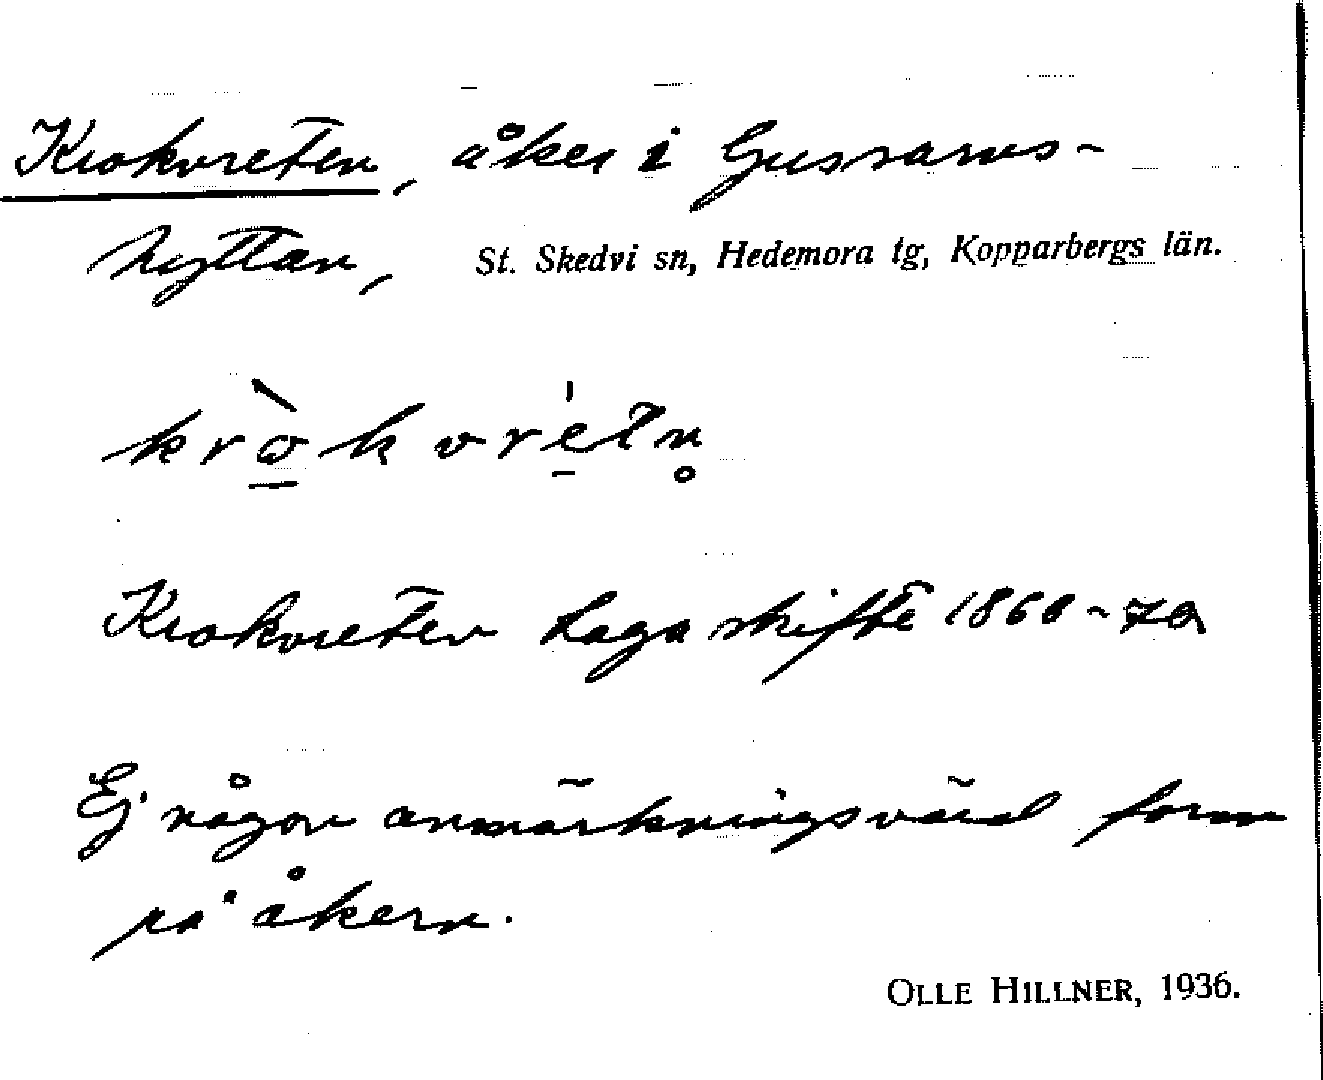 Krokvreten, åker i Gussarvs-
hyttan, St. Skedvi sn, Hedemora tg, Kopparbergs län.
kròkvretn̥
Krokvreten Laga skifte 1860-70
Ej någon anmärkningsvärd form
på åkern.
OLLE HILLNER, 1936.